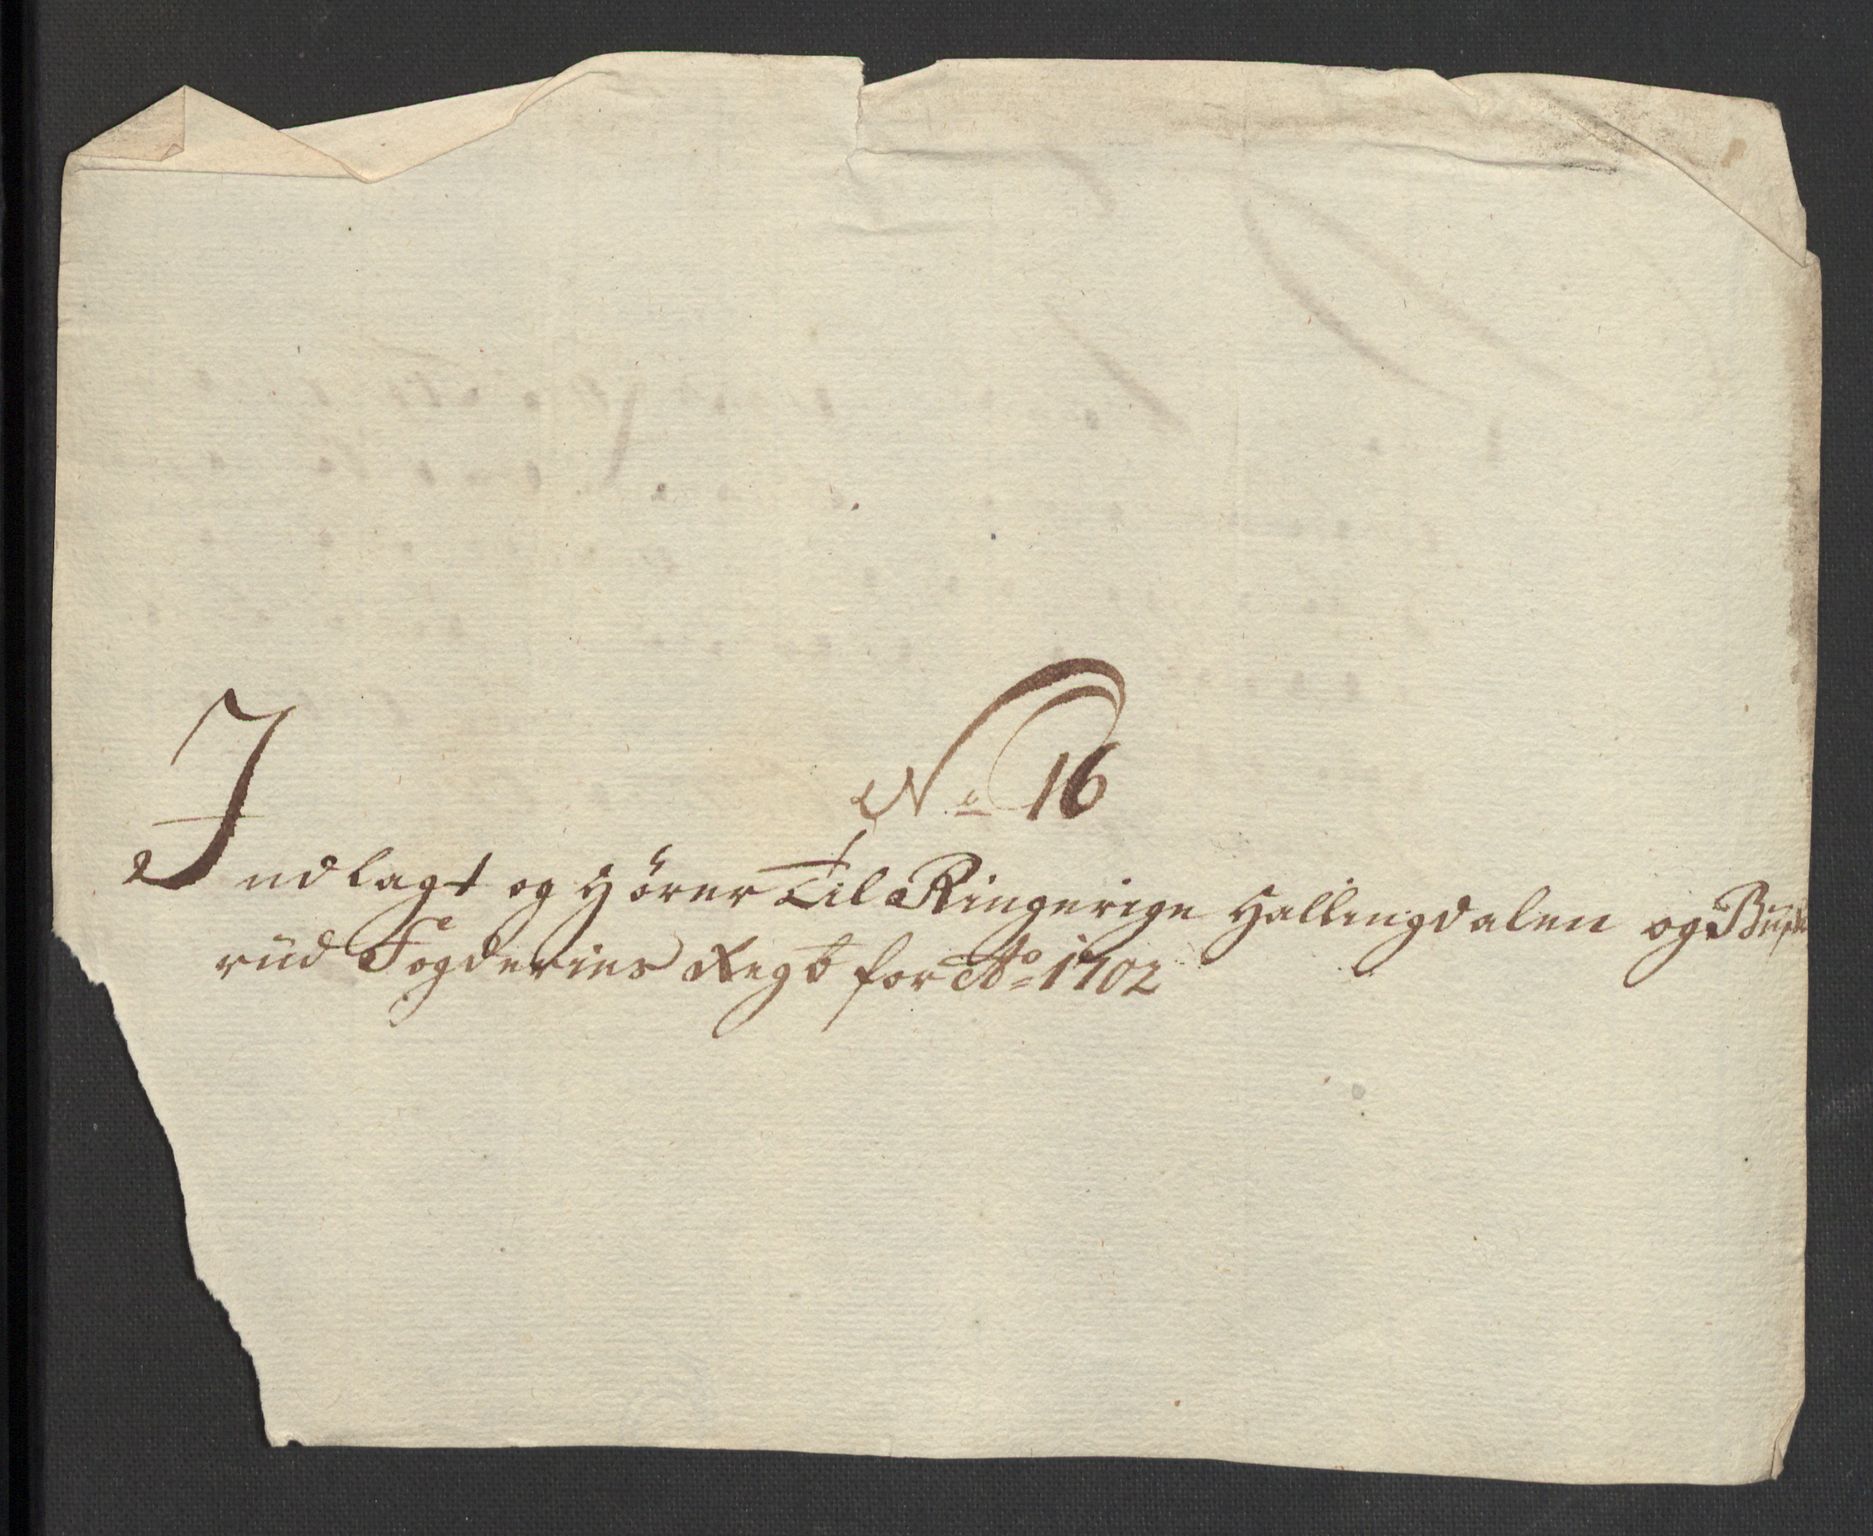 No 16
Indlagt og Hörer Til Ringerige Hallingdalen og Busche
rüd Fogderies Regb for Ao 1702